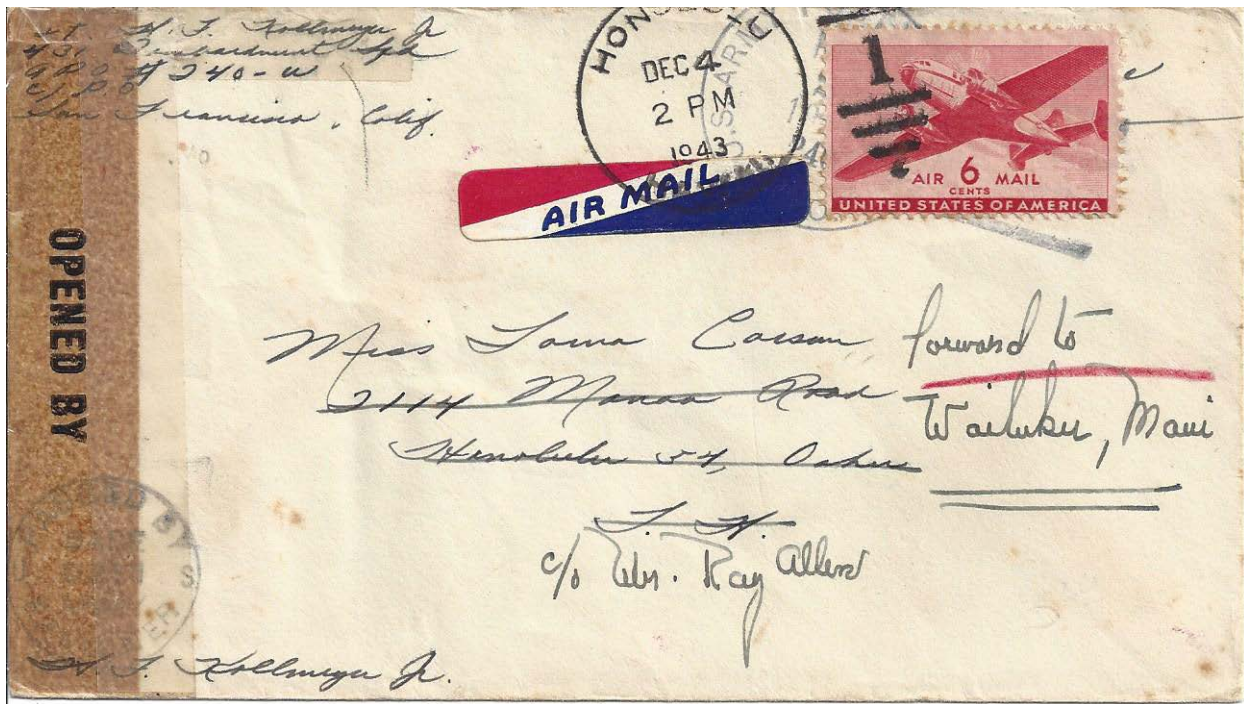 Lt H. F. Kollmeyer Jr
Bombardment Sqd
A P O # 240-
c/o P M
San Francisco, Calif.
HONOLU
DEC 4
2 PM
1943
U.S.
1
AIR 6 MAIL
CENTS
UNITED STATES OF AMERICA
AIR MAIL
OPENED BY
Miss Lorna Carson
2114 Manoa Road
Honolulu 54, Oahu
T. H.
forward to
Wailuku, Maui
c/o Mr. Ray Allen
BY
H. F. Kollmeyer Jr.